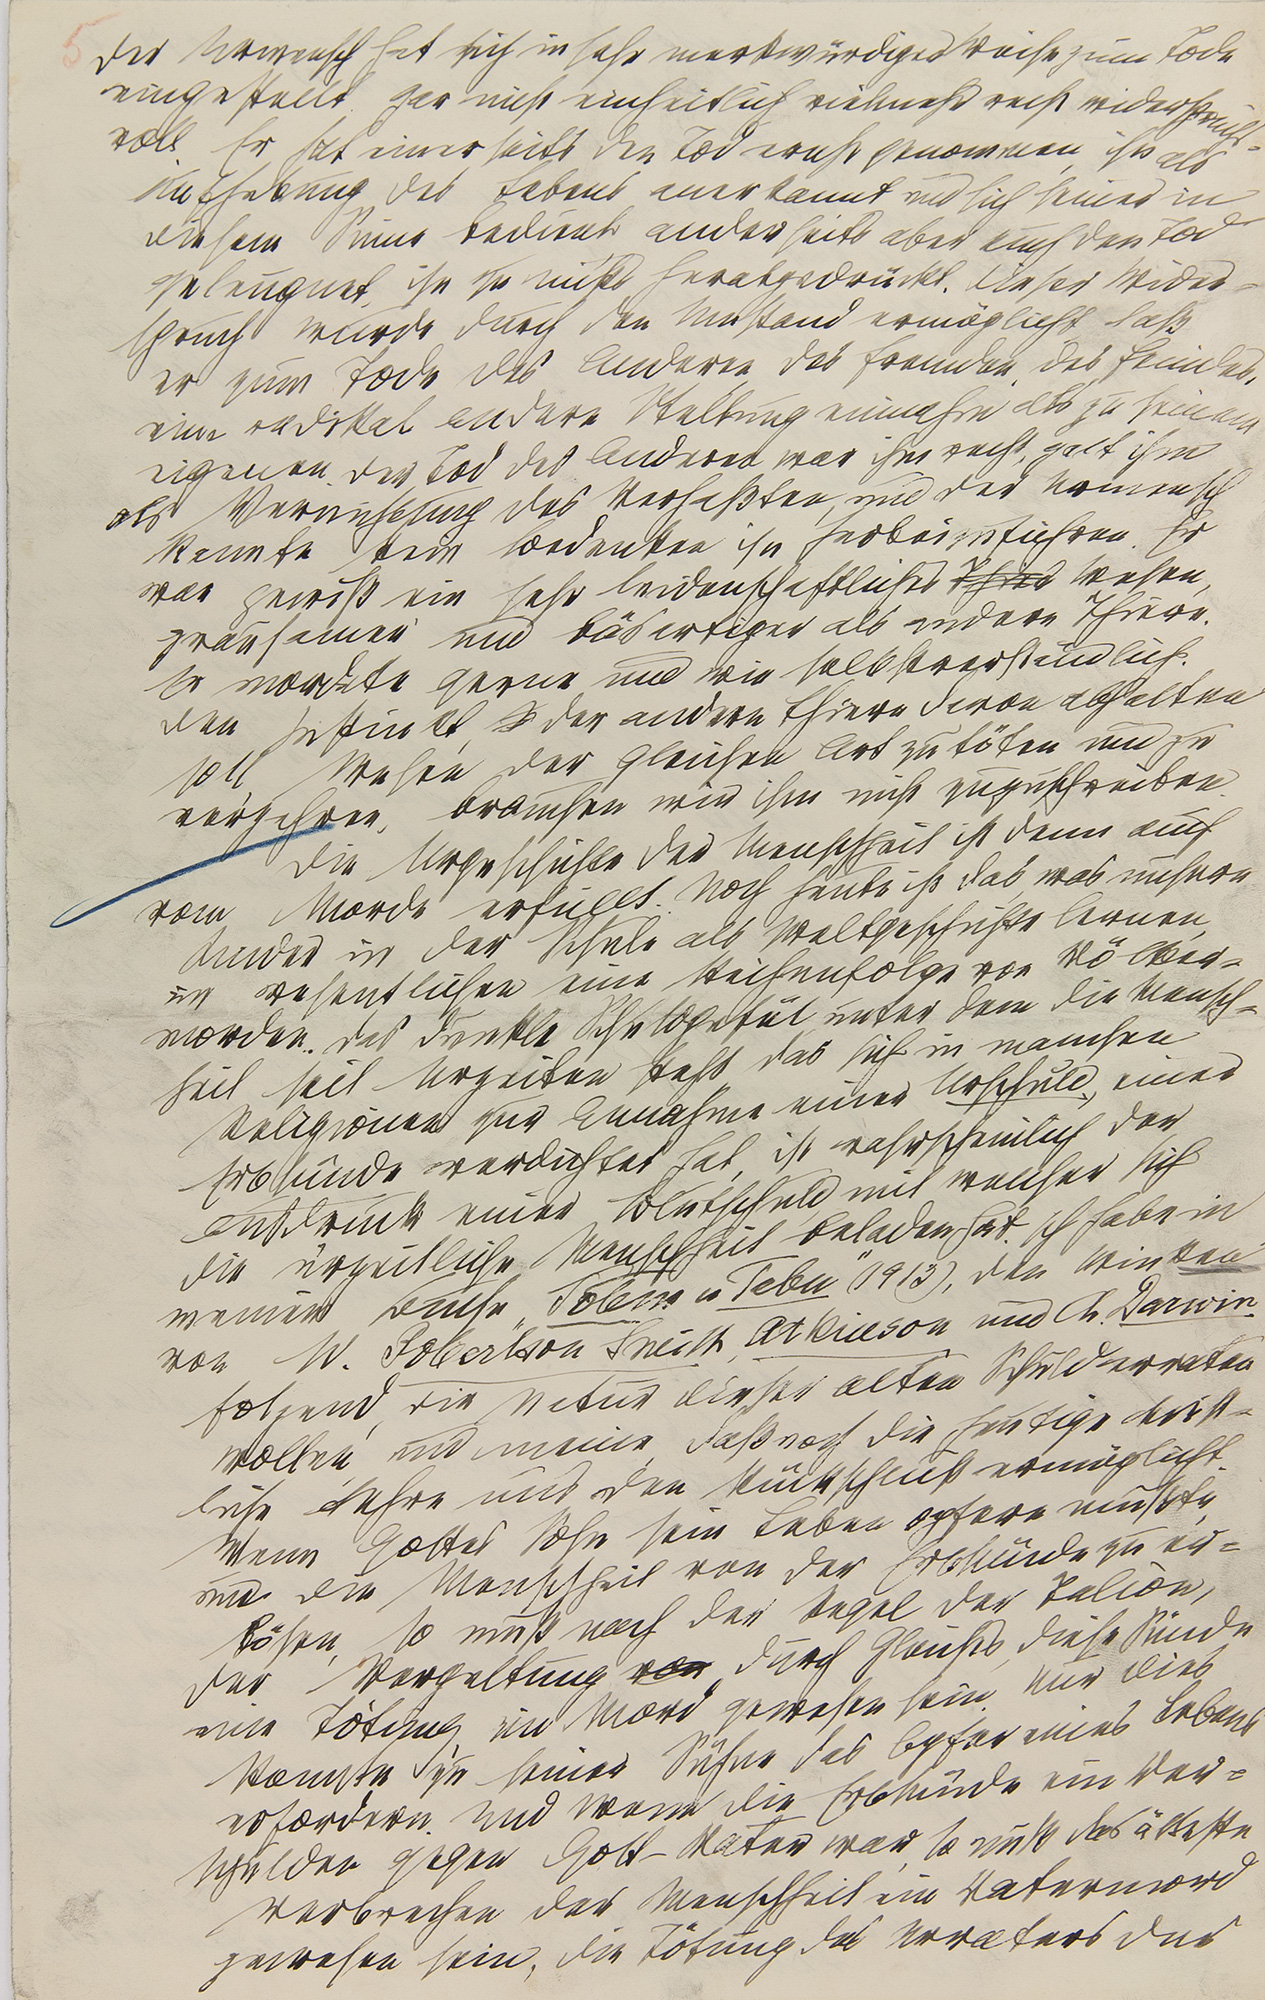 5
Der Urmensch hat sich in sehr merkwürdiger Weise zum Tode
eingestellt, gar nicht einheitlich vielmehr recht widerspruchs-
voll. Er hat einerseits den Tod ernst genommen, ihn als
Aufhebung des Lebens anerkannt und sich seiner in
diesem Sinne bedient, anderseits aber auch den Tod
geleugnet, ihn zu nichts herabgedrückt. Dieser Wider-
spruch wurde durch den Umstand ermöglicht daß
er zum Tode des Anderen, des Fremden, des Feindes,
eine radikal andere Stellung einnahm als zu seinem
eigenen. Der Tod des Anderen war ihm recht, galt ihm
als Vernichtung des Verhaßten, und der Urmensch
kannte kein Bedenken ihn herbeizuführen. Er
war gewiß ein sehr leidenschaftliches Wesen,
grausamer und bösartiger als andere Thiere.
Er mordete gerne und wie selbstverständlich.
Den Instinkt, der andere Thiere davon abhalten
soll, Wesen der gleichen Art zu töten und zu
verzehren, brauchen wir ihm nicht zuzuschreiben.
Die Urgeschichte der Menschheit ist denn auch
vom Morde erfüllt. Noch heute ist das was unsere
Kinder in der Schule als Weltgeschichte lernen,
im wesentlichen eine Reihenfolge von Völker-
morden. Das dunkle Schuldgefül unter dem die Mensch-
heit seit Urzeiten steht das sich in manchen
Religionen zur Annahme einer Urschuld, einer
Erbsünde verdichtet hat, ist wahrscheinlich der
Ausdruck einer Blutschuld mit welcher sich
die urzeitliche Menschheit beladen hat. Ich habe in
meinem Buche „Totem u Tabu" (1913), den Winken
von W. Robertson Smith, Atkinson und Ch. Darwin
folgend, die Natur dieser alten Schuld erraten
wollen, und meine, daß noch die heutige christ-
liche Lehre uns den Rückschluß ermöglicht.
Wenn Gottes Sohn sein Leben opfern mußte,
um die Menschheit von der Erbsünde zu er-
lösen, so muß nach der Regel der Talion,
der Vergeltung durch Gleiches, diese Sünde
eine Tötung, ein Mord gewesen sein. Nur dies
konnte zu seiner Sühne das Opfer eines Lebens
erfordern. Und wenn die Erbsünde ein Ver-
schulden gegen Gott-Vater war, so muß das älteste
Verbrechen der Menschheit ein Vatermord
gewesen sein, die Tötung des Urvaters der